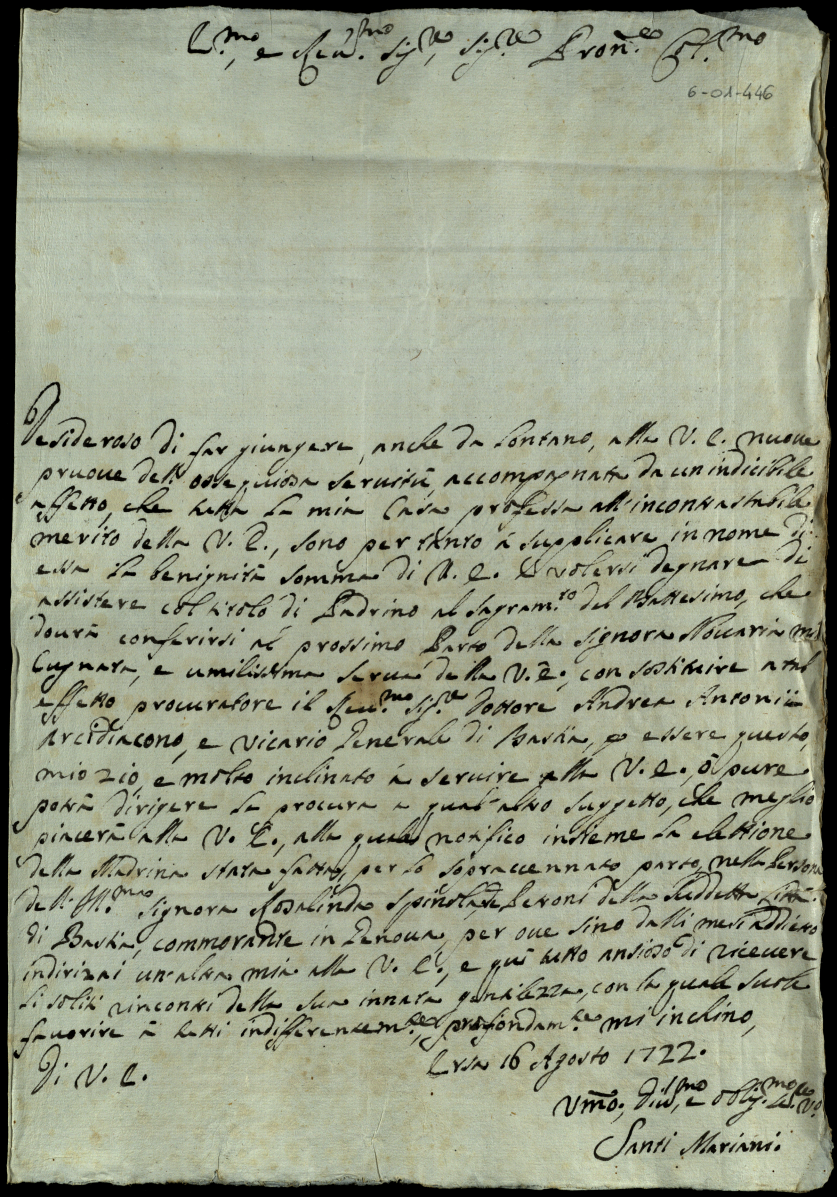 Ill.mo, e Reu.mo Sig.re, Sig.re Pron.e Col.mo
6-01-446
Desideroso di far giungere, anche da lontano, alla V. E. nuoue
pruoue dell' ossequiosa seruitù accompagnata da un indicibile
affetto, che tutta la mia Casa professa all' incontrastabile
merito della V. E., sono per tanto à supplicare in nome di
essa la benignità somma di V. E. à volersi degnare di
assistere col titolo di Padrino al sagram.to del Battesimo, che
dourà conferirsi al prossimo Parto della Signora mia
Cugnata, e umilissima serua della V. E., con sostituire a tal
effetto procuratore il Reu.mo Sig.re Dottore Andrea Antonij
Arcidiacono, e Vicario Generale di Bastia, p essere questo,
mio zio, e molto inclinato à seruire alla V. E., ò pure
potrà dirigere la procura a qual' altro suggetto, che meglio
piacerà alla V. E., alla quale notifico insieme la elettione
della Madrina stata fatta, per lo sopraccennato parto, nella Persona
dell' Ill.ma Signora Rosalinda Spinola, Peroni della suddetta Città
di Bastia, commorante in Genoua, per oue sino dalli mesi addietro
indirizai un' altra mia alla V. E., e quì tutto ansioso di riceuere
li soliti rincontri della sua innata gentilezza, con la quale suole
fauorire à tutti indifferentem.te, profondam.te mi inchino,
Di V. E.
Ersa 16 Agosto 1722.
Vmo, Diu.mo, e oblig.mo Se.re V.o
Santi Mariani.